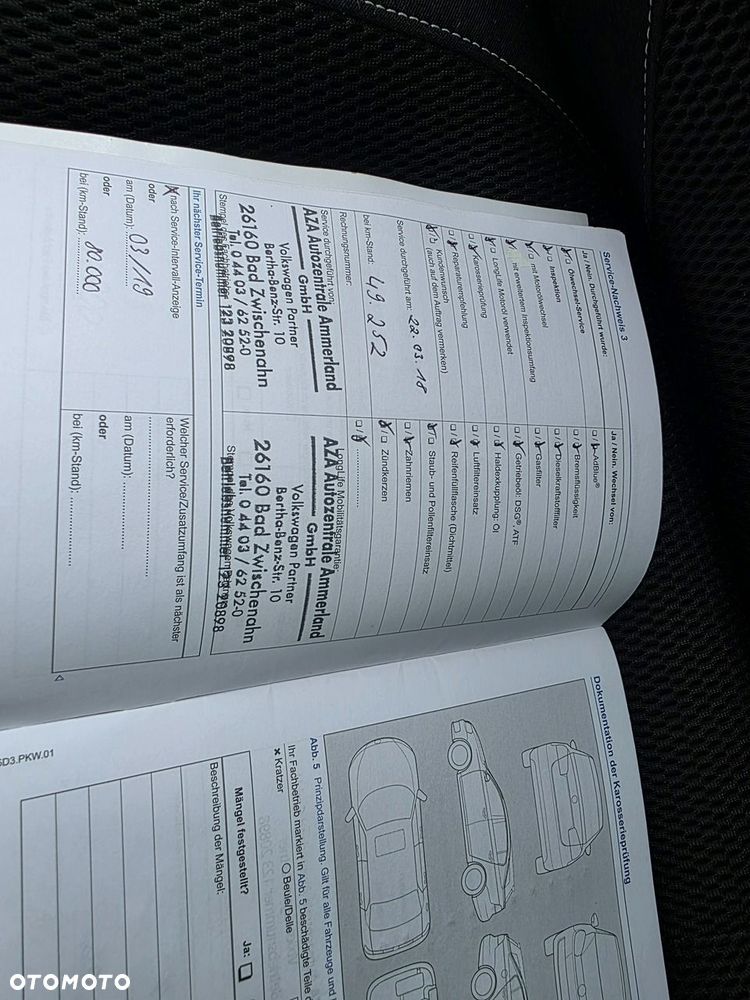 Service-Nachweis 3
Ja / Nein: Durchgeführt wurde:
Ölwechsel-Service
Inspektion
mit Motorölwechsel
mit erweitertem Inspektionsumfang
LongLife Motoröl verwendet
Karosserieprüfung
Reparaturempfehlung
Kundenwunsch
(auch auf dem Auftrag vermerken)
Service durchgeführt am: 22.03.18
bei km-Stand: 49.252
Rechnungsnummer:
Service durchgeführt von:
AZA Autozentrale Ammerland
GmbH
Volkswagen Partner
Bertha-Benz-Str. 10
26160 Bad Zwischenahn
Tel. 0 44 03 / 62 52-0
Betriebsnummer 123 20898
Ja / Nein. Wechsel von:
AdBlue®
Bremsflüssigkeit
Dieselkraftstofffilter
Gasfilter
Getriebeöl: DSG®, ATF
Haldexkupplung: Öl
Luftfiltereinsatz
Reifenfüllflasche (Dichtmittel)
Staub- und Pollenfiltereinsatz
Zahnriemen
Zündkerzen
LongLife Mobilitätsgarantie:
AZA Autozentrale Ammerland
GmbH
Volkswagen Partner
Bertha-Benz-Str. 10
26160 Bad Zwischenahn
Tel. 0 44 03 / 62 52-0
Betriebsnummer 123 20898
Ihr nächster Service-Termin
nach Service-Intervall-Anzeige
oder
am (Datum): 03/19
oder
bei (km-Stand): 80.000
Welcher Service/Zusatzumfang ist als nächster
erforderlich?
am (Datum):
oder
bei (km-Stand):
Dokumentation der Karosserieprüfung
Abb. 5 Prinzipdarstellung. Gilt für alle Fahrzeuge und
Ihr Fachbetrieb markiert in Abb. 5 beschädigte Teile
× Kratzer
○ Beule/Delle
Mängel festgestellt?
Ja:
Beschreibung der Mängel:
SD3.PKW.01
OTOMOTO